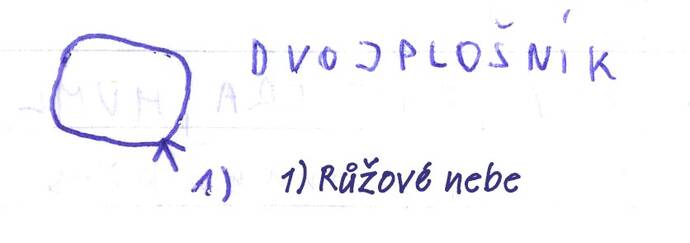 DVOJPLOŠNÍK
1) 1) Růžové nebe